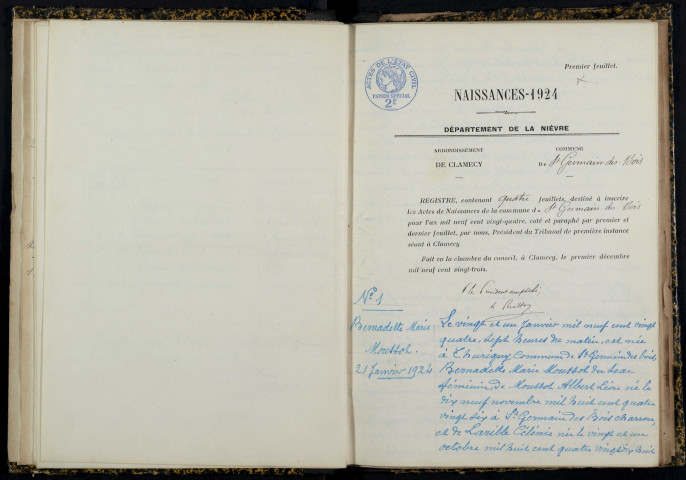 Premier feuillet.
ACTES DE L'ÉTAT CIVIL
PAPIER SPÉCIAL
2F
NAISSANCES-1924
DÉPARTEMENT DE LA NIÈVRE
ARRONDISSEMENT
DE CLAMECY
COMMUNE
De St Germain des Bois
REGISTRE, contenant quatre feuillets, destiné à inscrire
les Actes de Naissances de la commune de St Germain des Bois
pour l'an mil neuf cent vingt-quatre, coté et paraphé par premier et
dernier feuillet, par nous, Président du Tribunal de première instance
séant à Clamecy.
Fait en la chambre du conseil, à Clamecy, le premier décembre
mil neuf cent vingt-trois.
P le Président empêché,
No 1
Bernadette Marie
Moussot.
21 Janvier 1924
Le vingt et un Janvier mil neuf cent vingt
quatre, sept heures du matin, est née
à Thurigny Commune de St Germain des bois,
Bernadette Marie Moussot du sexe
féminin de Moussot Albert Léon né le
dix neuf novembre mil huit cent quatre
vingt six à St Germain des Bois charron,
et de Lazible Célénie née le vingt et un
octobre mil huit cent quatre vingt dix huit